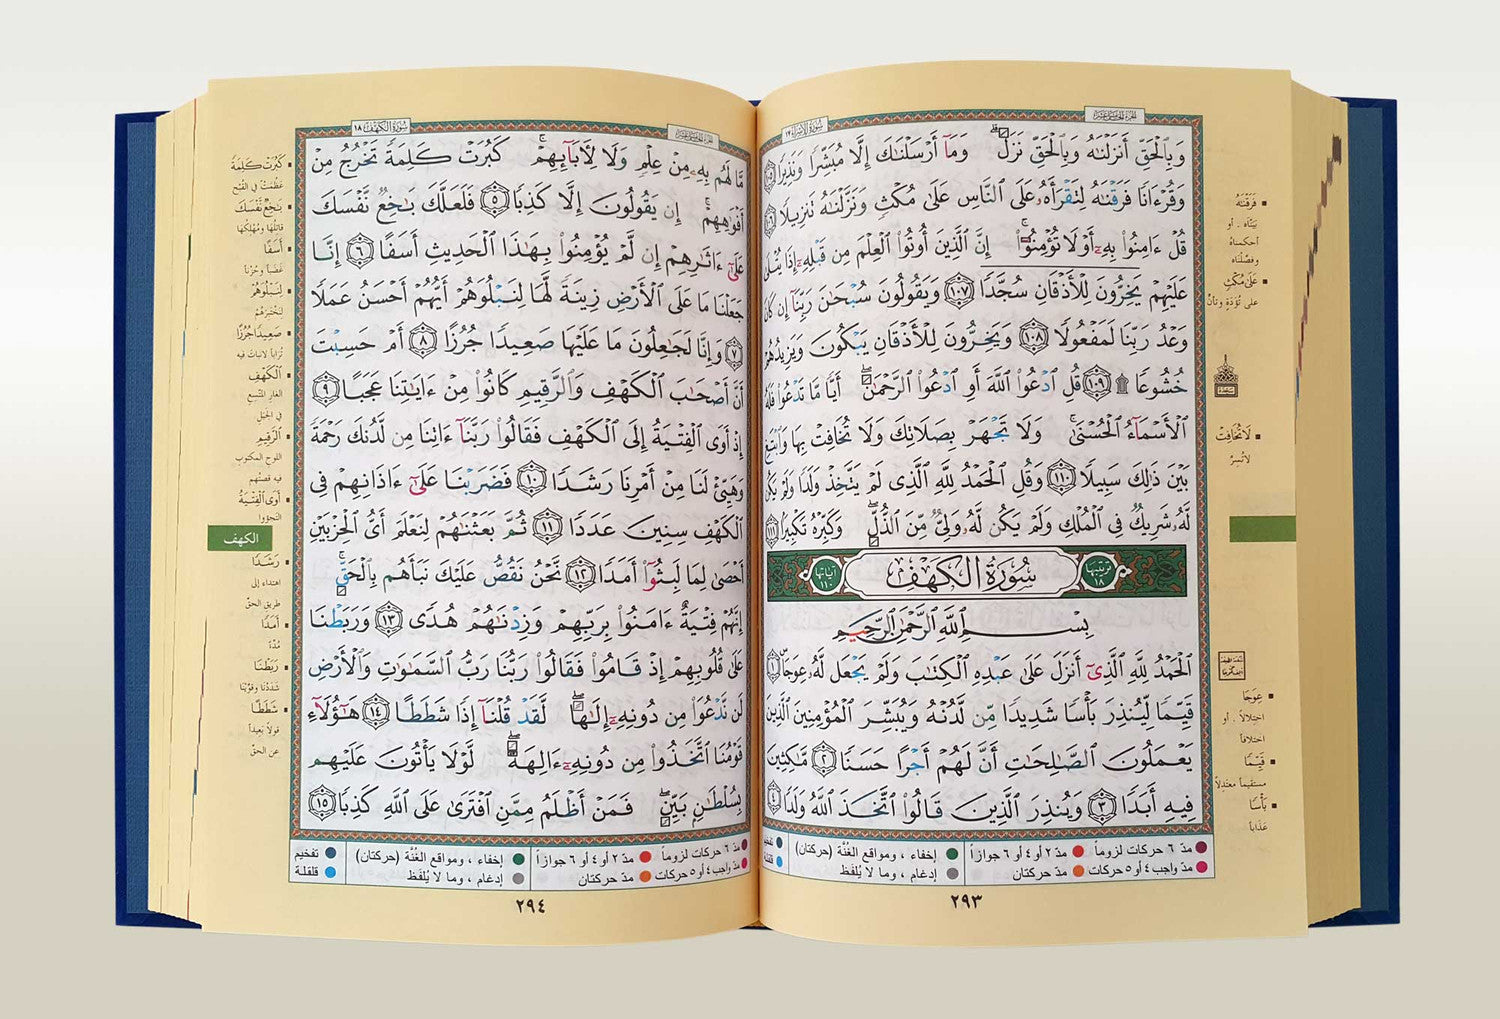 سُورَةُ الإِسْرَاءِ ١٧
وَبِالْحَقِّ أَنزَلْنَٰهُ وَبِالْحَقِّ نَزَلَ وَمَآ أَرْسَلْنَٰكَ إِلَّا مُبَشِّرًا وَنَذِيرًا ١٠٥
وَقُرْءَانًا فَرَقْنَٰهُ لِتَقْرَأَهُۥ عَلَى النَّاسِ عَلَىٰ مُكْثٍ وَنَزَّلْنَٰهُ تَنزِيلًا ١٠٦
قُلْ ءَامِنُوا۟ بِهِۦٓ أَوْ لَا تُؤْمِنُوٓا۟ إِنَّ الَّذِينَ أُوتُوا۟ الْعِلْمَ مِن قَبْلِهِۦٓ إِذَا يُتْلَىٰ
عَلَيْهِمْ يَخِرُّونَ لِلْأَذْقَانِ سُجَّدًا ١٠٧ وَيَقُولُونَ سُبْحَٰنَ رَبِّنَآ إِن كَانَ
وَعْدُ رَبِّنَا لَمَفْعُولًا ١٠٨ وَيَخِرُّونَ لِلْأَذْقَانِ يَبْكُونَ وَيَزِيدُهُمْ
خُشُوعًا ١٠٩ قُلِ ادْعُوا۟ اللَّهَ أَوِ ادْعُوا۟ الرَّحْمَٰنَ أَيًّا مَّا تَدْعُوا۟ فَلَهُ
الْأَسْمَآءُ الْحُسْنَىٰ وَلَا تَجْهَرْ بِصَلَاتِكَ وَلَا تُخَافِتْ بِهَا وَابْتَغِ
بَيْنَ ذَٰلِكَ سَبِيلًا ١١٠ وَقُلِ الْحَمْدُ لِلَّهِ الَّذِى لَمْ يَتَّخِذْ وَلَدًا وَلَمْ يَكُن
لَّهُۥ شَرِيكٌ فِى الْمُلْكِ وَلَمْ يَكُن لَّهُۥ وَلِىٌّ مِّنَ الذُّلِّ وَكَبِّرْهُ تَكْبِيرًا ١١١
ترتيبها ١٨ سُورَةُ الكَهْفِ آياتها ١١٠
بِسْمِ اللَّهِ الرَّحْمَٰنِ الرَّحِيمِ
الْحَمْدُ لِلَّهِ الَّذِىٓ أَنزَلَ عَلَىٰ عَبْدِهِ الْكِتَٰبَ وَلَمْ يَجْعَل لَّهُۥ عِوَجًا ١
قَيِّمًا لِّيُنذِرَ بَأْسًا شَدِيدًا مِّن لَّدُنْهُ وَيُبَشِّرَ الْمُؤْمِنِينَ الَّذِينَ
يَعْمَلُونَ الصَّٰلِحَٰتِ أَنَّ لَهُمْ أَجْرًا حَسَنًا ٢ مَّٰكِثِينَ
فِيهِ أَبَدًا ٣ وَيُنذِرَ الَّذِينَ قَالُوا۟ اتَّخَذَ اللَّهُ وَلَدًا ٤
فَرَقْنَٰهُ
بَيَّنَّاه . أو
أحكمناهُ
وفصَّلناه
عَلَىٰ مُكْثٍ
على تُؤَدَةٍ وتأنٍّ
لَا تُخَافِتْ
لا تُسِرَّ
عِوَجًا
اختلالاً . أو
اختلافاً
قَيِّمًا
مستقيماً معتدلاً
بَأْسًا
عذاباً
مدّ ٦ حركات لزوماً مدّ ٢ أو ٤ أو ٦ جوازاً إخفاء ، ومواقع الغُنَّة (حركتان) تفخيم
مدّ واجب ٤ أو ٥ حركات مدّ حركتان إدغام ، وما لا يُلفَظ قلقلة
٢٩٣
سُورَةُ الكَهْفِ ١٨
مَّا لَهُم بِهِۦ مِنْ عِلْمٍ وَلَا لِءَابَآئِهِمْ كَبُرَتْ كَلِمَةً تَخْرُجُ مِنْ
أَفْوَٰهِهِمْ إِن يَقُولُونَ إِلَّا كَذِبًا ٥ فَلَعَلَّكَ بَٰخِعٌ نَّفْسَكَ
عَلَىٰٓ ءَاثَٰرِهِمْ إِن لَّمْ يُؤْمِنُوا۟ بِهَٰذَا الْحَدِيثِ أَسَفًا ٦ إِنَّا
جَعَلْنَا مَا عَلَى الْأَرْضِ زِينَةً لَّهَا لِنَبْلُوَهُمْ أَيُّهُمْ أَحْسَنُ عَمَلًا
٧ وَإِنَّا لَجَٰعِلُونَ مَا عَلَيْهَا صَعِيدًا جُرُزًا ٨ أَمْ حَسِبْتَ
أَنَّ أَصْحَٰبَ الْكَهْفِ وَالرَّقِيمِ كَانُوا۟ مِنْ ءَايَٰتِنَا عَجَبًا ٩
إِذْ أَوَى الْفِتْيَةُ إِلَى الْكَهْفِ فَقَالُوا۟ رَبَّنَآ ءَاتِنَا مِن لَّدُنكَ رَحْمَةً
وَهَيِّئْ لَنَا مِنْ أَمْرِنَا رَشَدًا ١٠ فَضَرَبْنَا عَلَىٰٓ ءَاذَانِهِمْ فِى
الْكَهْفِ سِنِينَ عَدَدًا ١١ ثُمَّ بَعَثْنَٰهُمْ لِنَعْلَمَ أَىُّ الْحِزْبَيْنِ
أَحْصَىٰ لِمَا لَبِثُوٓا۟ أَمَدًا ١٢ نَّحْنُ نَقُصُّ عَلَيْكَ نَبَأَهُم بِالْحَقِّ
إِنَّهُمْ فِتْيَةٌ ءَامَنُوا۟ بِرَبِّهِمْ وَزِدْنَٰهُمْ هُدًى ١٣ وَرَبَطْنَا
عَلَىٰ قُلُوبِهِمْ إِذْ قَامُوا۟ فَقَالُوا۟ رَبُّنَا رَبُّ السَّمَٰوَٰتِ وَالْأَرْضِ
لَن نَّدْعُوَا۟ مِن دُونِهِۦٓ إِلَٰهًا لَّقَدْ قُلْنَآ إِذًا شَطَطًا ١٤ هَٰٓؤُلَآءِ
قَوْمُنَا اتَّخَذُوا۟ مِن دُونِهِۦٓ ءَالِهَةً لَّوْلَا يَأْتُونَ عَلَيْهِم
بِسُلْطَٰنٍ بَيِّنٍ فَمَنْ أَظْلَمُ مِمَّنِ افْتَرَىٰ عَلَى اللَّهِ كَذِبًا ١٥
كَبُرَتْ كَلِمَةً
عَظُمَتْ في القُبْحِ
بَٰخِعٌ نَّفْسَكَ
قاتلها ومُهْلِكها
أَسَفًا
غَضَباً وحُزْناً
لِنَبْلُوَهُمْ
لنختبرهم
صَعِيدًا جُرُزًا
تُراباً لا نبات فيه
الْكَهْفِ
الغار المتّسع
في الجبل
الرَّقِيمِ
اللوح المكتوب
فيه قصتهم
أَوَى الْفِتْيَةُ
التجؤوا
الكهف
رَشَدًا
اهتداء إلى
طريق الحقّ
أَمَدًا
مُدّة
رَبَطْنَا
شددنا وقوّينا
شَطَطًا
قولاً بعيداً
عن الحقّ
مدّ ٦ حركات لزوماً مدّ ٢ أو ٤ أو ٦ جوازاً إخفاء ، ومواقع الغُنَّة (حركتان) تفخيم
مدّ واجب ٤ أو ٥ حركات مدّ حركتان إدغام ، وما لا يُلفَظ قلقلة
٢٩٤